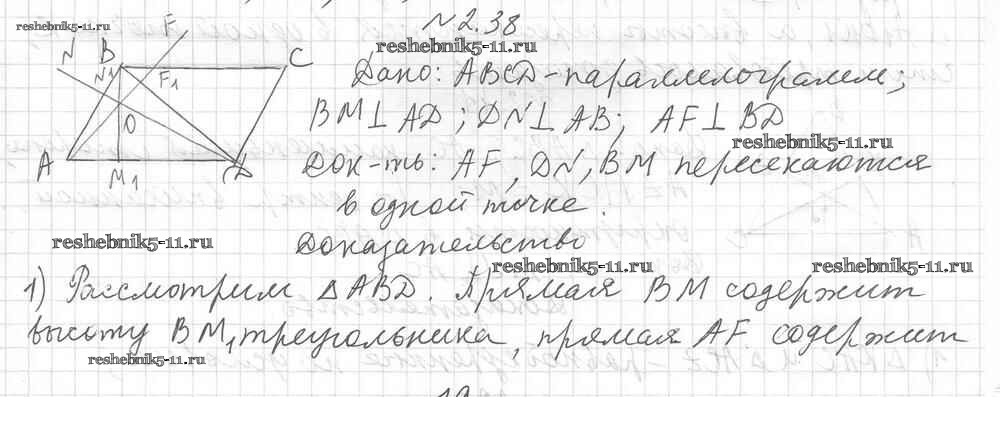 reshebnik5-11.ru
№2.38
reshebnik5-11.ru
N B N1 F F1 C
O
A M1 D
Дано: ABCD - параллелограмм;
BM⊥AD; DN⊥AB; AF⊥BD
reshebnik5-11.ru
Док-ть: AF, DN, BM пересекаются
в одной точке.
reshebnik5-11.ru
Доказательство
reshebnik5-11.ru reshebnik5-11.ru
1) Рассмотрим △ABD. Прямая BM содержит
высоту BM1 треугольника, прямая AF содержит
reshebnik5-11.ru